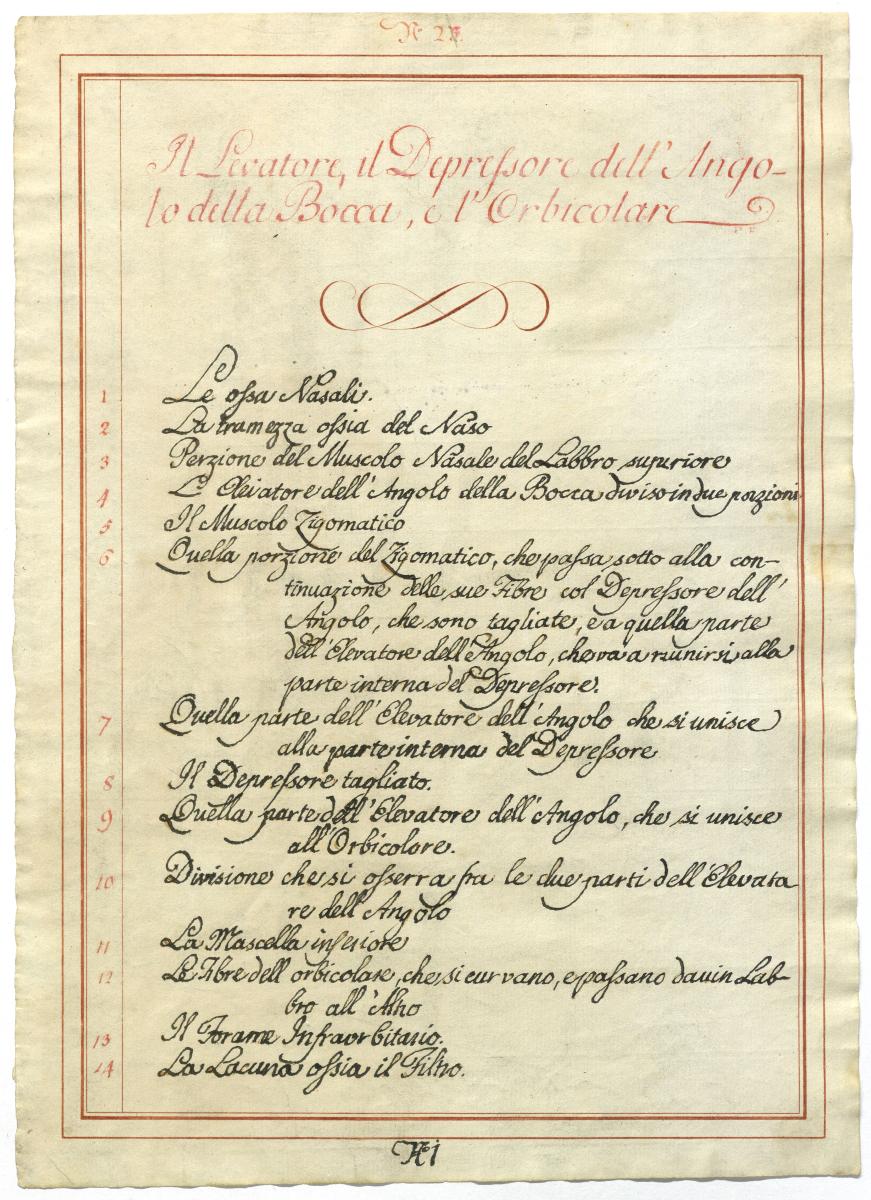 Nº 2
Il Levatore, il Depressore dell'Ango-
lo della Bocca, e l'Orbicolare
1 Le ossa Nasali.
2 La tramezza ossia del Naso
3 Perzione del Muscolo Nasale del Labbro superiore
4 L'Elevatore dell'Angolo della Bocca diviso in due porzioni
5 Il Muscolo Zigomatico
6 Quella porzione del Zigomatico, che passa sotto alla con-
tinuazione delle sue Fibre col Depressore dell'
Angolo, che sono tagliate, e a quella parte
dell'Elevatore dell'Angolo, che va a riunirsi alla
parte interna del Depressore.
7 Quella parte dell'Elevatore dell'Angolo che si unisce
alla parte interna del Depressore
8 Il Depressore tagliato.
9 Quella parte dell'Elevatore dell'Angolo, che si unisce
all'Orbicolore.
10 Divisione che si osserra fra le due parti dell'Elevato
re dell'Angolo
11 La Mascella inferiore
12 Le Fibre dell orbicolare, che si curvano, e passano da uin Lab-
bro all'Altro
13 Il Forame Infraorbitario.
14 La Lacuna ossia il Filtro.